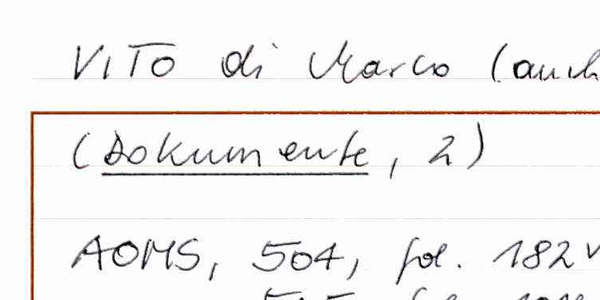 VITO di Marco (auch
(Dokumente, 2)
AOMS, 504, fol. 182v